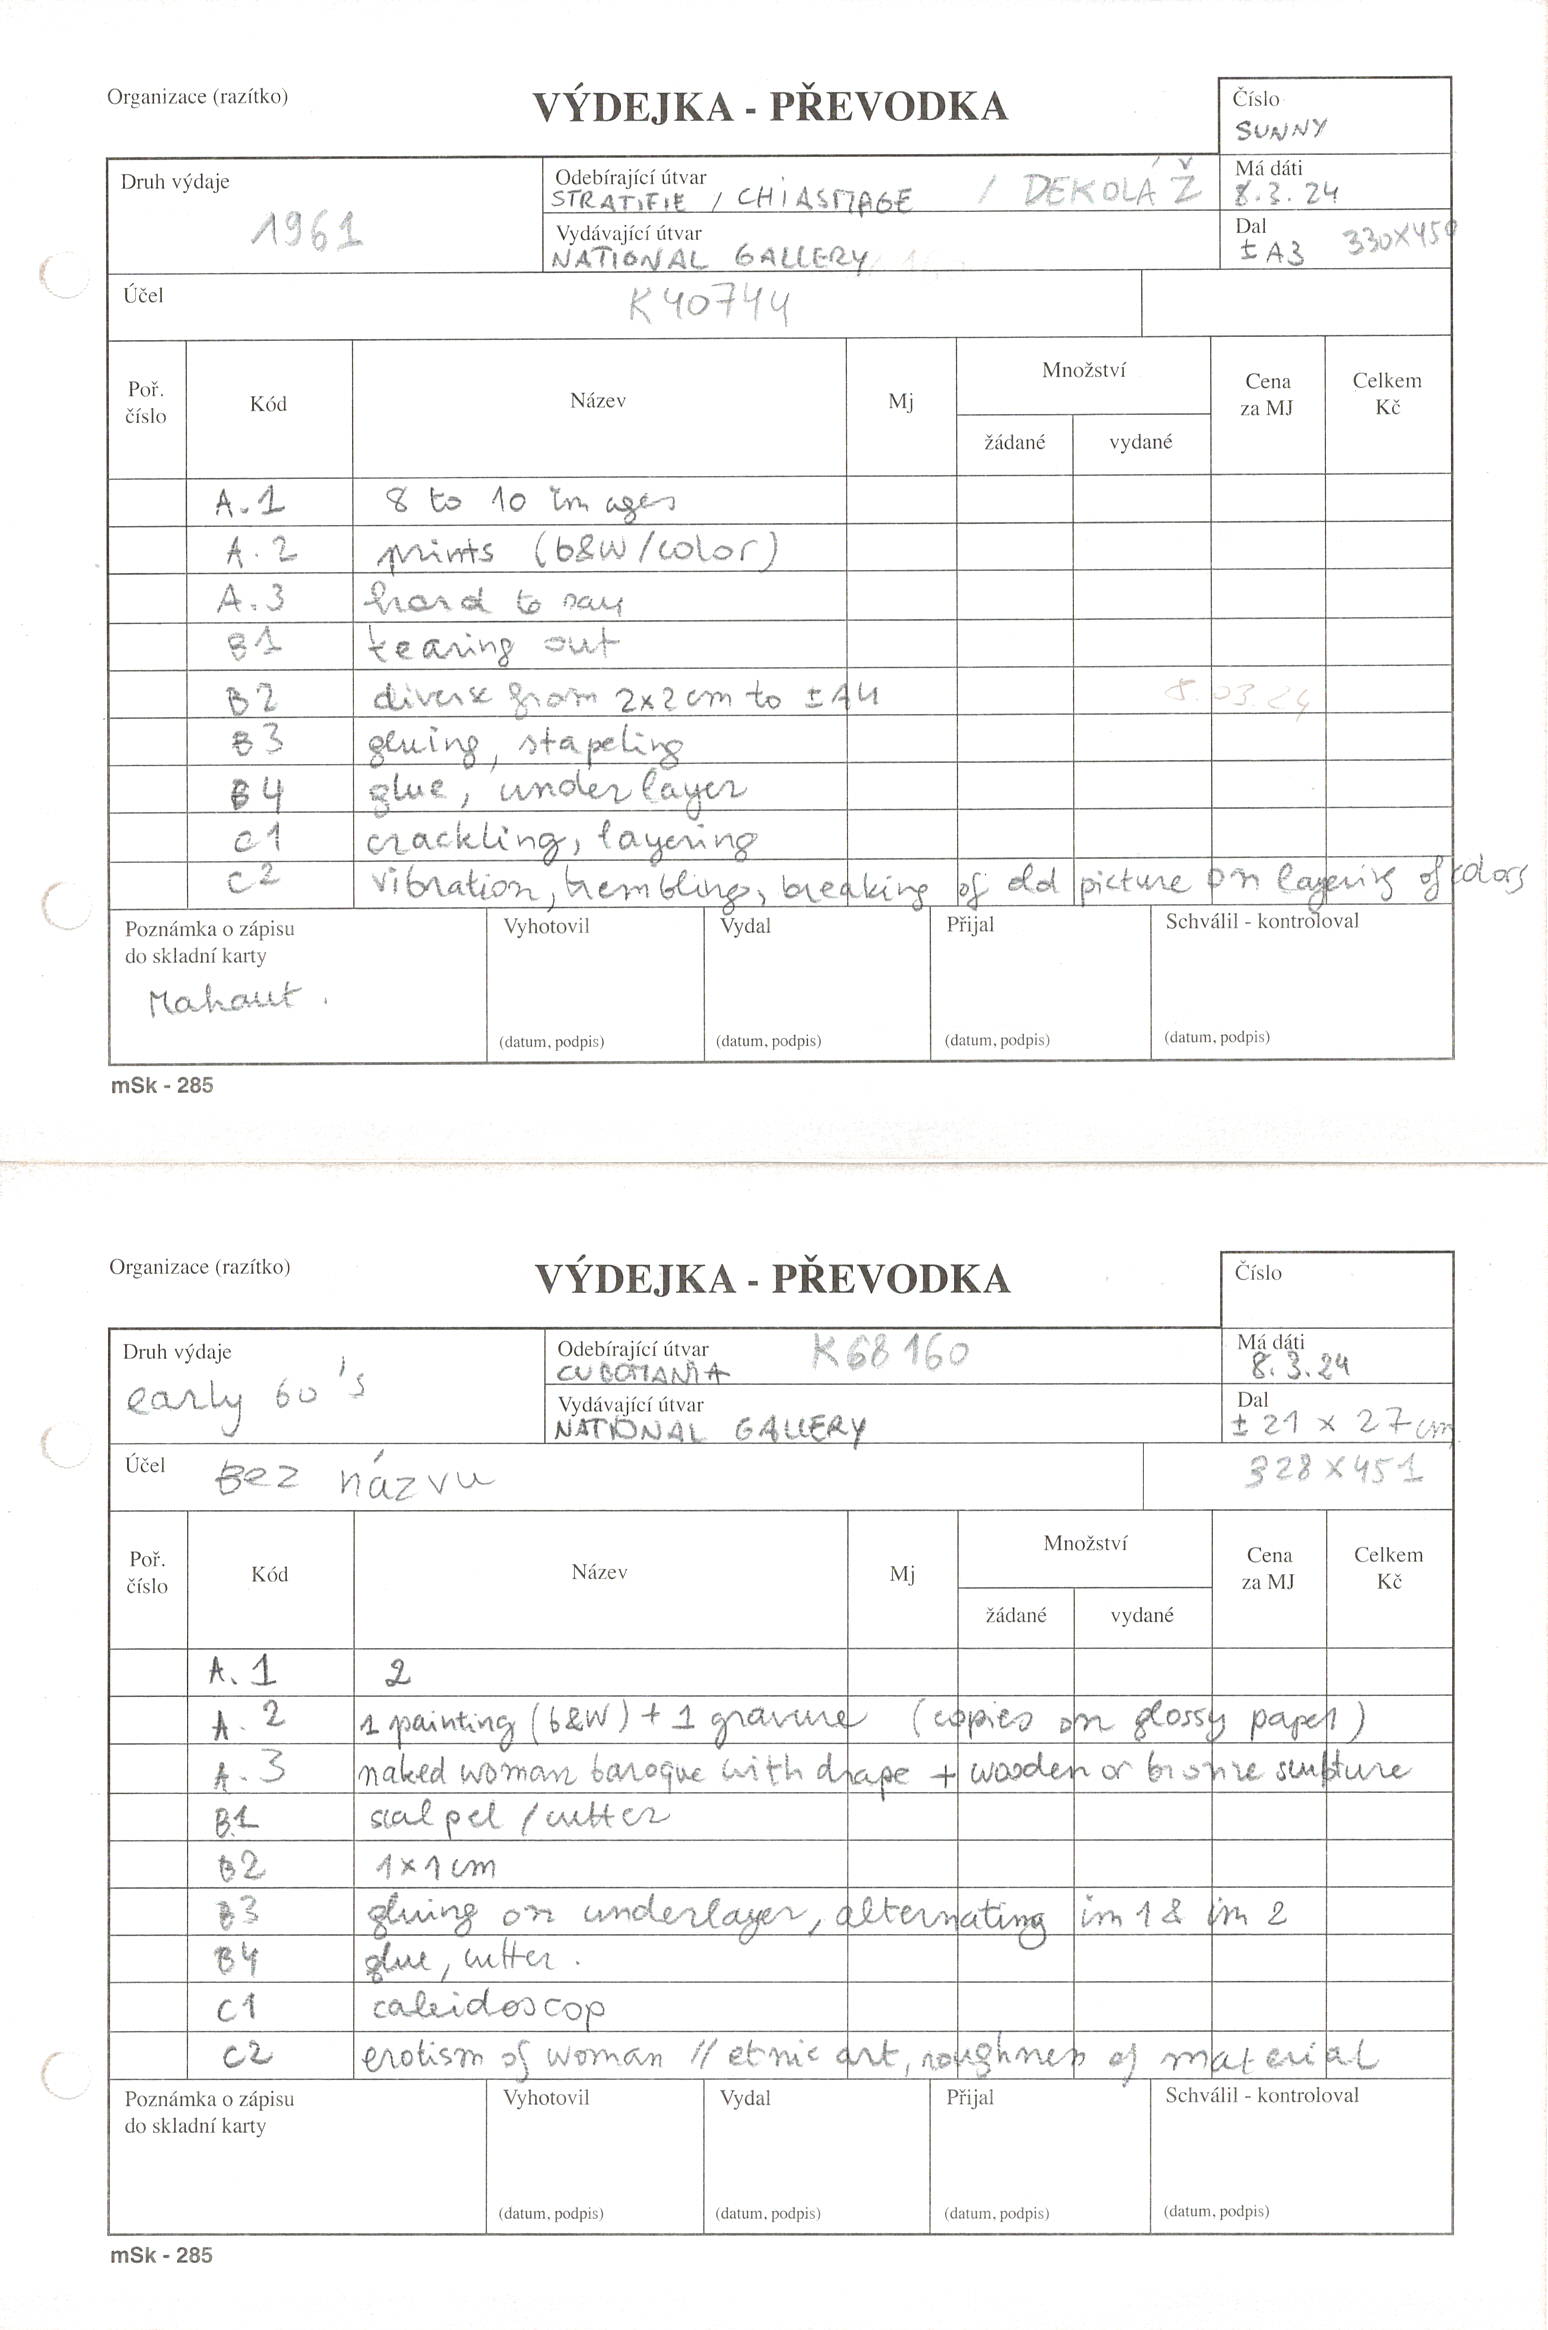 Organizace (razítko)
VÝDEJKA - PŘEVODKA
Číslo
SUNNY
Druh výdaje
1961
Odebírající útvar
STRATIFIE / CHIASMAGE / DEKOLÁŽ
Má dáti
8.3.24
Vydávající útvar
NATIONAL GALLERY
Dal
± A3 330x450
Účel
K40744
Poř. číslo
Kód
Název
Mj
Množství
žádané
vydané
Cena za MJ
Celkem Kč
A.1 8 to 10 images
A.2 prints (b&w/color)
A.3 hard to say
B1 tearing out
B2 diverse from 2x2 cm to ± A4 8.03.24
B3 gluing, stapeling
B4 glue, underlayer
C1 crackling, layering
C2 vibration, trembling, breaking of old picture on layering of colors
Poznámka o zápisu
do skladní karty
Mahaut.
Vyhotovil
(datum, podpis)
Vydal
(datum, podpis)
Přijal
(datum, podpis)
Schválil - kontroloval
(datum, podpis)
mSk - 285
Organizace (razítko)
VÝDEJKA - PŘEVODKA
Číslo
Druh výdaje
early 60's
Odebírající útvar K68160
CUBOMANIA
Má dáti
8.3.24
Vydávající útvar
NATIONAL GALLERY
Dal
± 21 x 27 cm
Účel
Bez názvu
328x451
Poř. číslo
Kód
Název
Mj
Množství
žádané
vydané
Cena za MJ
Celkem Kč
A.1 2
A.2 1 painting (b&W) + 1 gravure (copies on glossy paper)
A.3 naked woman baroque with drape + wooden or bronze sculpture
B1 scalpel / cutter
B2 1x1 cm
B3 gluing on underlayer, alternating im 1 & im 2
B4 glue, cutter.
C1 caleidoscop
C2 erotism of woman // etnic art, roughness of material
Poznámka o zápisu
do skladní karty
Vyhotovil
(datum, podpis)
Vydal
(datum, podpis)
Přijal
(datum, podpis)
Schválil - kontroloval
(datum, podpis)
mSk - 285